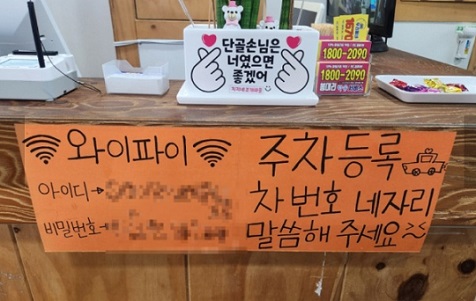 단골손님은
너였으면
좋겠어
1800-2090
1800-2090
와이파이
아이디→
비밀번호→
주차등록
차 번호 네자리
말씀해 주세요~